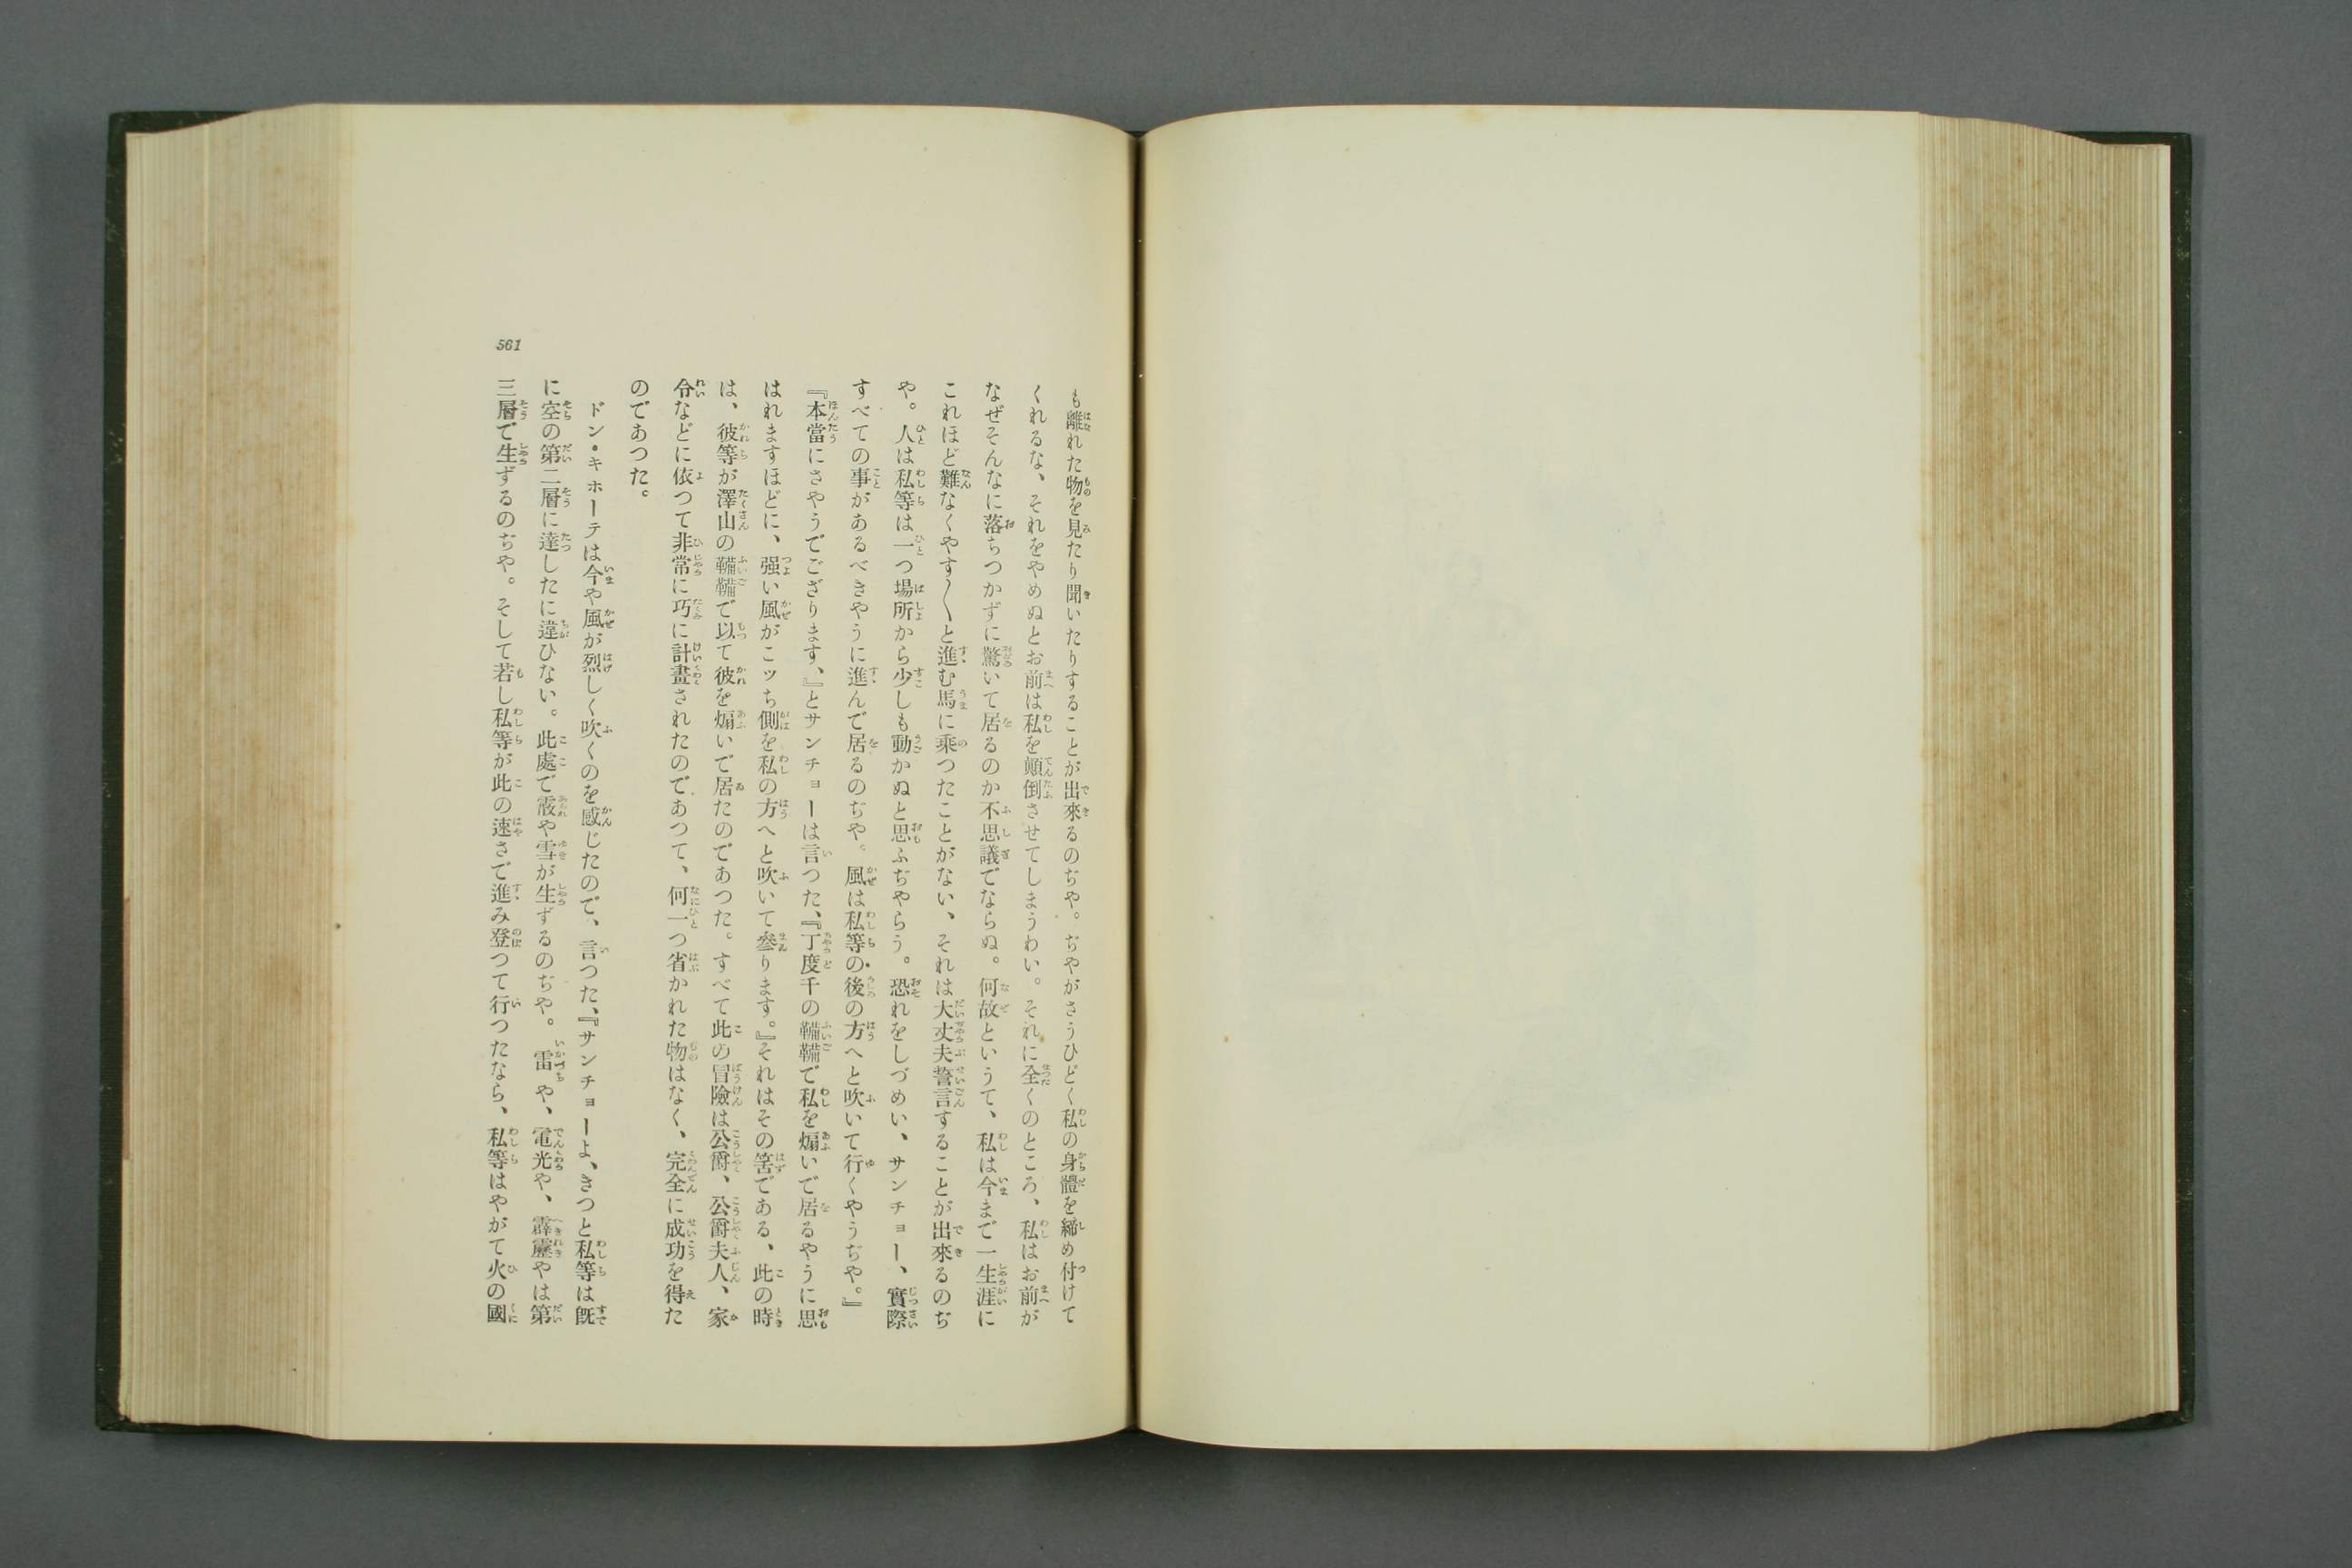 も離れた物を見たり聞いたりすることが出來るのぢや。ぢやがさうひどく私の身體を締め付けて
くれるな、それをやめぬとお前は私を顛倒させてしまうわい。それに全くのところ、私はお前が
なぜそんなに落ちつかずに驚いて居るのか不思議でならぬ。何故というて、私は今まで一生涯に
これほど難なくやす〱と進む馬に乘つたことがない、それは大丈夫誓言することが出來るのぢ
や。人は私等は一つ場所から少しも動かぬと思ふぢやらう。恐れをしづめい、サンチョー、實際
すべての事があるべきやうに進んで居るのぢや。風は私等の後の方へと吹いて行くやうぢや。』
『本當にさやうでござります、』とサンチョーは言つた、『丁度千の鞴鞴で私を煽いで居るやうに思
はれますほどに、强い風がこッち側を私の方へと吹いて參ります。』それはその筈である、此の時
は、彼等が澤山の鞴鞴で以て彼を煽いで居たのであつた。すべて此の冒險は公爵、公爵夫人、家
令などに依つて非常に巧に計畫されたのであつて、何一つ省かれた物はなく、完全に成功を得た
のであつた。
ドン・キホーテは今や風が烈しく吹くのを感じたので、言つた、『サンチョーよ、きつと私等は旣
に空の第二層に達したに違ひない。此處で霰や雪が生ずるのぢや。雷や、電光や、霹靂やは第
三層で生ずるのぢや。そして若し私等が此の速さで進み登つて行つたなら、私等はやがて火の國
561